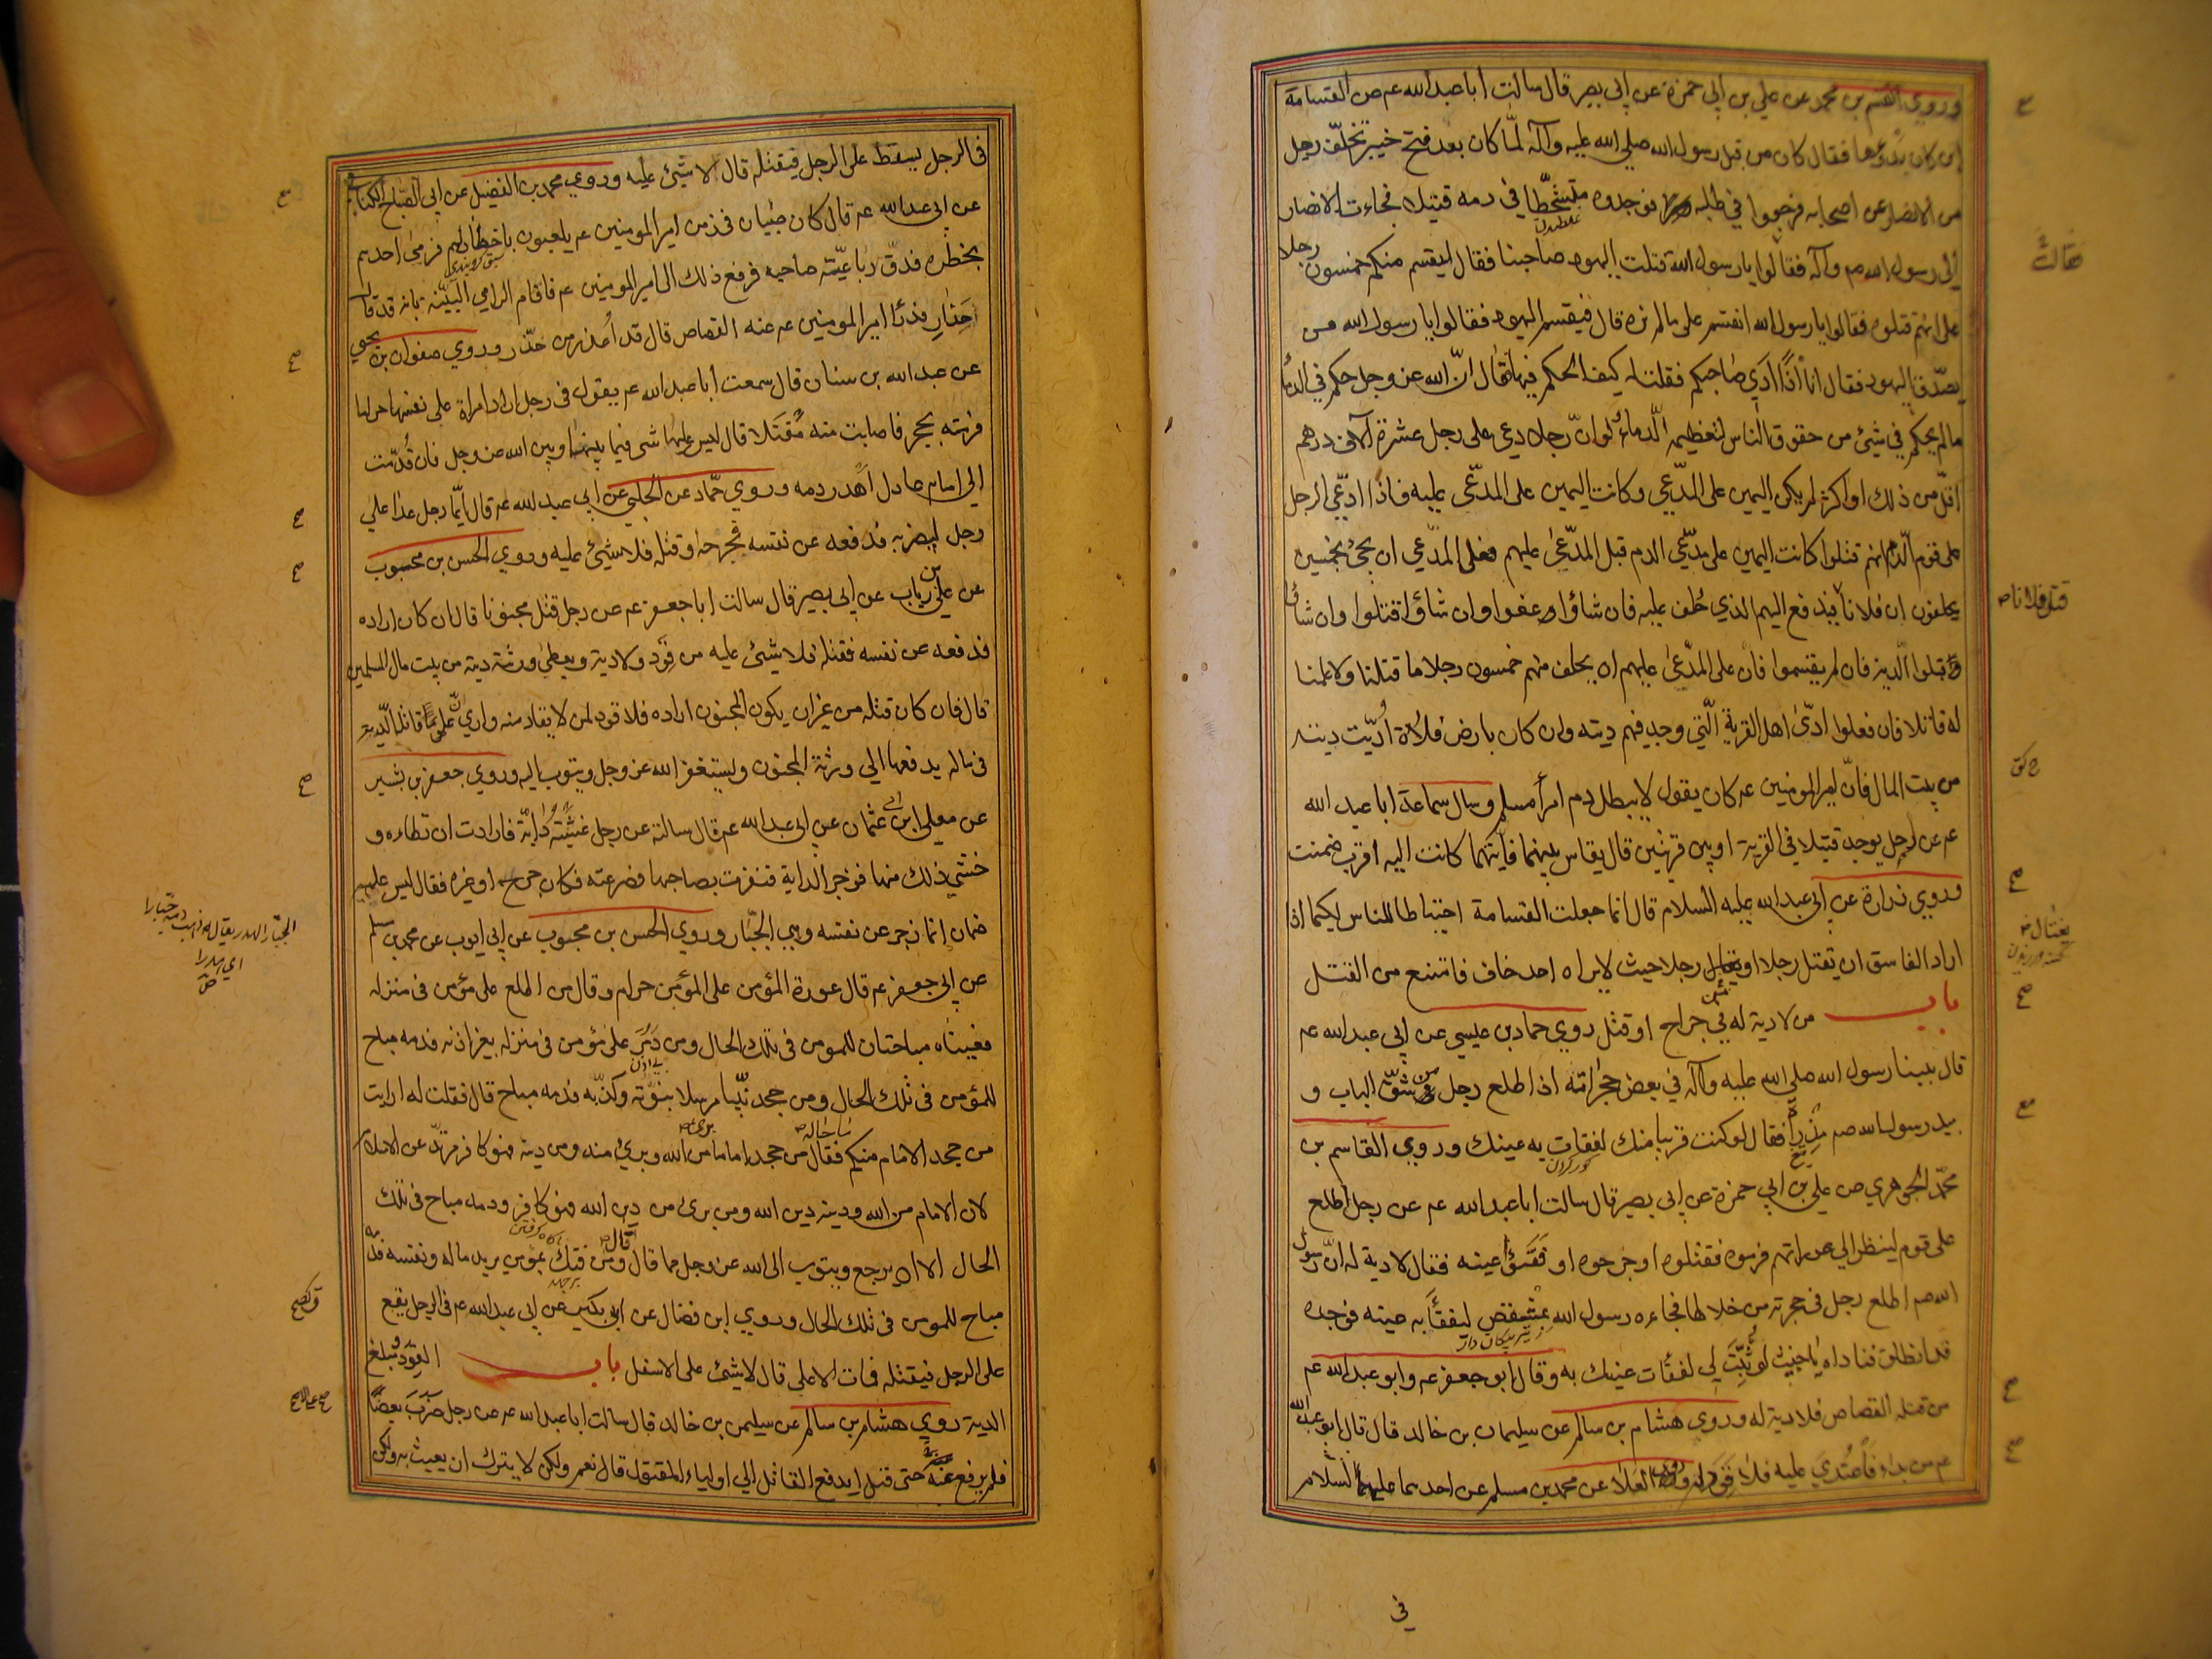 وروي القسم بن محمد عن علي بن ابي حمزة عن ابي بصير قال سالت ابا عبدالله عم عن القسامة
اين كان بدؤها فقال كان من قبل رسول الله صلي الله عليه وآله لمّا كان بعد فتح خيبر تخلّف رجل
من الانصار عن اصحابه فرجعوا في طلبه فوجدوه متشحّطا في دمه قتيلا فجاءت الانصار
الى رسول الله صم وآله فقالوا يا رسول الله قتلت اليهود صاحبنا فقال ليقسم منكم خمسون رجلا
على انهم قتلوه فقالوا يا رسول الله انقسم على مالم نره قال فيقسم اليهود فقالوا يا رسول الله من
يصدّق اليهود فقال انا اذًا أدي صاحبكم فقلت له كيف الحكم فيها فقال انّ الله عز وجل حكم في الدماء
مالم يحكم في شئ من حقوق الناس لتعظيمه الدماء لو انّ رجلا دعي على رجل عشرة آلاف درهم
اقلّ من ذلك او اكثر لم يكن اليمين على المدّعي وكانت اليمين على المدّعى عليه فاذا ادّعى الرجل
على قوم الدم انهم قتلوا كانت اليمين على مدّعي الدم قبل المدّعى عليهم فعلى المدّعي ان يجئ بخمسين
يحلفون ان فلانا فيدفع اليهم الذي حُلف عليه فان شاؤا عفوا وان شاؤا قتلوا وان شاؤا
قبلوا الدية فان لم يقسموا فان على المدّعى عليهم ان يحلف منهم خمسون رجلا ما قتلنا ولا علمنا
له قاتلا فان فعلوا ادّى اهل القرية الّتي وجد فيهم ديته وان كان بارض فلاة أدّيت ديته
من بيت المال فانّ امير المومنين عم كان يقول لا يبطل دم امرأ مسلم وسال سماعة ابا عبد الله
عم عن رجل يوجد قتيلا في القرية او بين قريتين قال يقاس بينهما فايّتهما كانت اليه اقرب ضمنت
وروي زرارة عن ابي عبدالله عليه السلام قال انما جعلت القسامة احتياطا للناس لكيما اذا
اراد الفاسق ان يقتل رجلا او يغتال رجلا حيث لا يراه احد خاف فامتنع من القتل
باب من لا دية له في جراح او قتل روي حماد بن عيسي عن ابي عبدالله عم
قال بينا رسول الله صلي الله عليه وآله في بعض حجراته اذا اطلع رجل من شقّ الباب و
بيد رسول الله صم مدراة فقال لو كنت قريبا منك لفقات به عينك وروي القاسم بن
محمّد الجوهري عن علي بن ابي حمزة عن ابي بصير قال سالت ابا عبدالله عم عن رجل اطلع
على قوم لينظر الي عوراتهم فرموه فقتلوه او جرحوه او فقئوا عينه فقال لا دية له انّ رسول
الله صم اطلع رجل في حجرته من خلالها فجاءه رسول الله بمشقص ليفقأ به عينه فوجده
قد انطلق فناداه يا خبيث لو ثبتّ لي لفقأت عينك به وقال ابو جعفر عم وابو عبدالله عم
من قتله القصاص فلا دية له وروي هشام بن سالم عن سليمان بن خالد قال قال ابو عبدالله
عم من بداء فاعتُدي عليه فلا قود له وروي العلا عن محمد بن مسلم عن احدهما عليهما السلام
قتل فلانا
يغتال
في
في الرجل يسقط على الرجل فيقتله قال لا شيئ عليه وروي محمد بن الفضيل عن ابي الصباح الكناني
عن ابي عبدالله عم قال كان صبيان في زمن امير المومنين عم يلعبون باخطار لهم فرمى احدهم
بخطره فدقّ رباعيّته صاحبه فرفع ذلك الى امير المومنين عم فاقام الرامي البيّنه بانه قد قال
حَذارِ فدرأ امير المومنين عم عنه القصاص قال قد أعذر من حذّر وروي صفوان بن يحيي
عن عبد الله بن سنان قال سمعت ابا عبدالله عم يقول في رجل اراد امراة على نفسها حراما
فرمته بحجر فاصابت منه مقتلا قال ليس عليها شى فيما بينها وبين الله عز وجل فان قُدّمت
الى امام عادل اهدر دمه وروي حمّاد عن الحلبي عن ابي عبدالله عم قال ايّما رجل عدا علي
رجل ليضربه فدفعه عن نفسه فجرحه او قتله فلا شيئ عليه وروي الحسن بن محبوب
عن علي بن رياب عن ابي بصير قال سالت ابا جعفر عم عن رجل قتل مجنونا قال ان كان اراده
فدفعه عن نفسه فقتله فلا شيئ عليه من قود ولا دية ويعطي ورثته ديته من بيت مال المسلمين
قال فان كان قتله من غير ان يكون المجنون اراده فلا قود لمن لا يقاد منه واري انّ على قاتله الدية
في ماله يدفعها الي ورثة المجنون ويستغفر الله عز وجل ويتوب اليه وروي جعفر بن بشير
عن معلي ابي عثمان عن ابي عبدالله عم قال سالته عن رجل غشيته دابّة فارادت ان تطاءه و
خشي ذلك منها فزجر الدابة فنفرت بصاحبها فصرعته فكان جرح او غيره فقال ليس عليه
ضمان انما زجر عن نفسه وهي الجبّار وروي الحسن بن محبوب عن ابي ايوب عن محمد بن مسلم
عن ابي جعفر عم قال عورة المؤمن على المؤمن حرام وقال من اطلع على مؤمن في منزله
فعيناه مباحتان للمومن في تلك الحال ومن دَمَرَ على مؤمن في منزله بغير اذنه فدمه مباح
للمؤمن في تلك الحال ومن جحد نبّيا مرسلا بنوّته وكذّبه فدمه مباح قال فقلت له ارايت
من جحد الامام منكم فقال من جحد اماما من الله وبرئ منه ومن دينه فهو كافر مرتدّ عن الاسلام
لان الامام من الله ودينه دين الله ومن برئ من دين الله فهو كافر ودمه مباح في تلك
الحال الا ان يرجع ويتوب الى الله عز وجل مما قال قال ومن فتك بمومن يريد ماله ونفسه فدمه
مباح للمومن في تلك الحال وروي ابن فضال عن ابن بكير عن ابي عبدالله عم في الرجل يقع
على الرجل فيقتله فمات الاعلي قال لا شيئ على الاسفل باب القود ومبلغ
الدية روي هشام بن سالم عن سليمن بن خالد قال سالت ابا عبدالله عم عن رجل ضرب بعصًا
فلم يرفع عنه حتى قتل ايدفع القاتل الي اولياء المقتول قال نعم ولكن لا يترك ان يعبث به ولكن